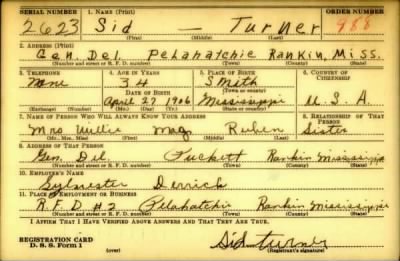 SERIAL NUMBER 1. NAME (Print) ORDER NUMBER
2623 Sid — Turner 988
(First) (Middle) (Last)
2. ADDRESS (Print)
Gen. Del. Pelahatchie Rankin, Miss.
(Number and street or R. F. D. number) (Town) (County) (State)
3. TELEPHONE 4. AGE IN YEARS 5. PLACE OF BIRTH 6. COUNTRY OF CITIZENSHIP
None 34 Smith
DATE OF BIRTH (Town or county)
April 27 1906 Mississippi U.S.A.
(Exchange) (Number) (Mo.) (Day) (Yr.) (State or country)
7. NAME OF PERSON WHO WILL ALWAYS KNOW YOUR ADDRESS 8. RELATIONSHIP OF THAT PERSON
Mrs Willie Mag Ruben Sister
(Mr., Mrs., Miss) (First) (Middle) (Last)
9. ADDRESS OF THAT PERSON
Gen. Del. Puckett Rankin Mississippi
(Number and street or R. F. D. number) (Town) (County) (State)
10. EMPLOYER'S NAME
Sylvester Derrick
11. PLACE OF EMPLOYMENT OR BUSINESS
R.F.D #2 Pelahatchie Rankin Mississippi
(Number and street or R. F. D. number) (Town) (County) (State)
I AFFIRM THAT I HAVE VERIFIED ABOVE ANSWERS AND THAT THEY ARE TRUE.
REGISTRATION CARD
D. S. S. Form 1 (over) Sid turner
(Registrant's signature)